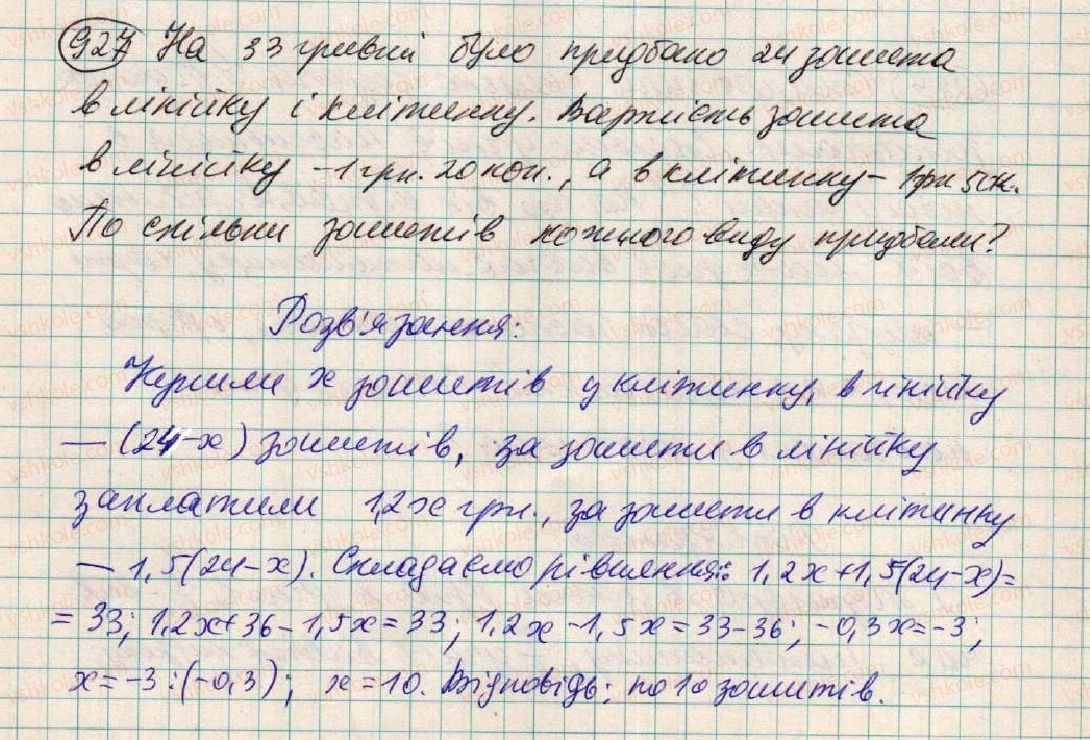 927 На 33 гривні було придбано 24 зошита
в лінійку і клітинку. Вартість зошита
в лінійку - 1 грн. 20 коп., а в клітинку - 1 грн 50 к.
По скільки зошитів кожного виду придбали?
Розв'язання:
Купили x зошитів у клітинку, в лінійку
— (24-x) зошитів, за зошити в лінійку
заплатили 1,2x грн., за зошити в клітинку
— 1,5(24-x). Складаємо рівняння: 1,2x+1,5(24-x)=
= 33; 1,2x+36-1,5x=33; 1,2x-1,5x=33-36; -0,3x=-3;
x=-3:(-0,3); x=10. Відповідь: по 10 зошитів.